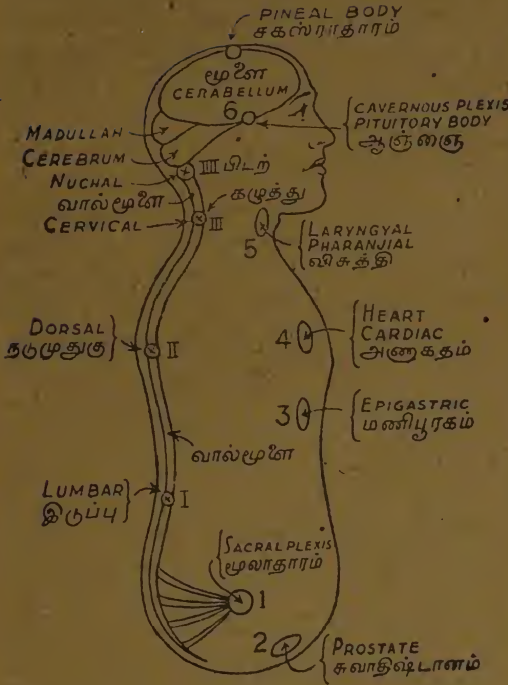 PINEAL BODY
சகஸ்ராதாரம்
மூளை
CERABELLUM
6
CAVERNOUS PLEXIS
PITUITORY BODY
ஆஞ்ஞை
MADULLAH
CEREBRUM
NUCHAL
வால்மூளை
CERVICAL
III பிடற்
கழுத்து
III
5
LARYNGYAL
PHARANJIAL
விசுத்தி
DORSAL
நடுமுதுகு
II
4
HEART
CARDIAC
அணாகதம்
3
EPIGASTRIC
மணிபூரகம்
வால்மூளை
LUMBAR
இடுப்பு
I
SACRAL PLEXIS
மூலாதாரம்
1
2
PROSTATE
சுவாதிஷ்டானம்